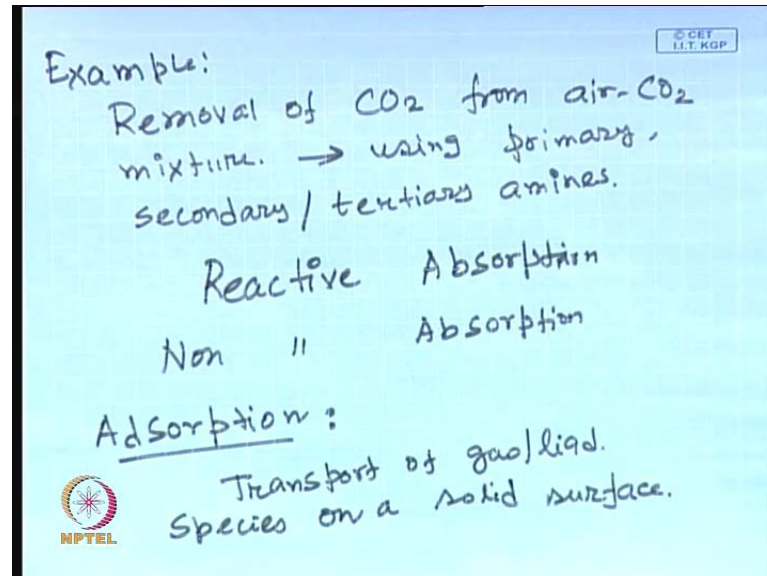 © CET
I.I.T. KGP
Example:
Removal of CO2 from air-CO2
mixture. → using primary,
secondary / tertiary amines.
Reactive Absorption
Non " Absorption
Adsorption:
Transport of gas/liqd.
Species on a solid surface.
NPTEL